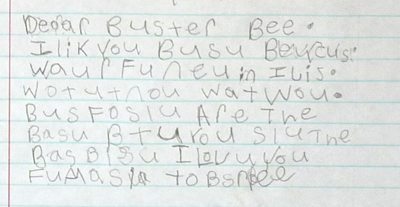 Dear Buster Bee.
I lik you Busu Beurcus.
Waur Funeu in Ilis.
Wotutnou wat wou.
Bus Foslu Are The
Basu Btuyou slu The
Bas Blsu I Lovu you
Fumasla to